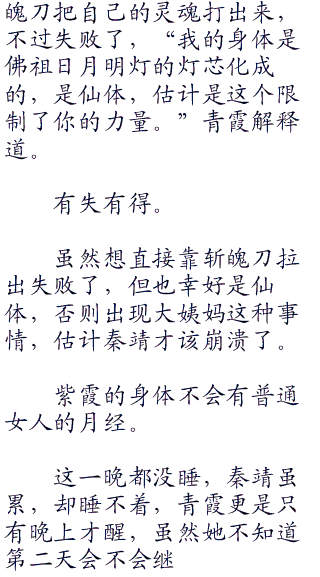 魄刀把自己的灵魂打出来，
不过失败了，“我的身体是
佛祖日月明灯的灯芯化成
的，是仙体，估计是这个限
制了你的力量。”青霞解释
道。
有失有得。
虽然想直接靠斩魄刀拉
出失败了，但也幸好是仙
体，否则出现大姨妈这种事
情，估计秦靖才该崩溃了。
紫霞的身体不会有普通
女人的月经。
这一晚都没睡，秦靖虽
累，却睡不着，青霞更是只
有晚上才醒，虽然她不知道
第二天会不会继